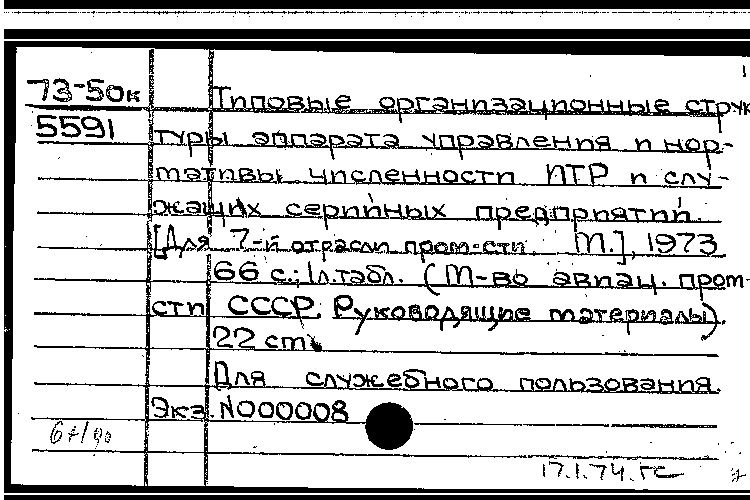 73-50к Типовые организационные струк
5591 туры аппарата управления и нор-
мативы численности ИТР и слу-
жащих серийных предприятий.
[Для 7-й отрасли пром-сти. М.], 1973
66 с.; 1л.табл. (М-во авиац. пром-
сти СССР. Руководящие материалы).
22 см.
Для служебного пользования.
Экз. N000008
17.1.74.